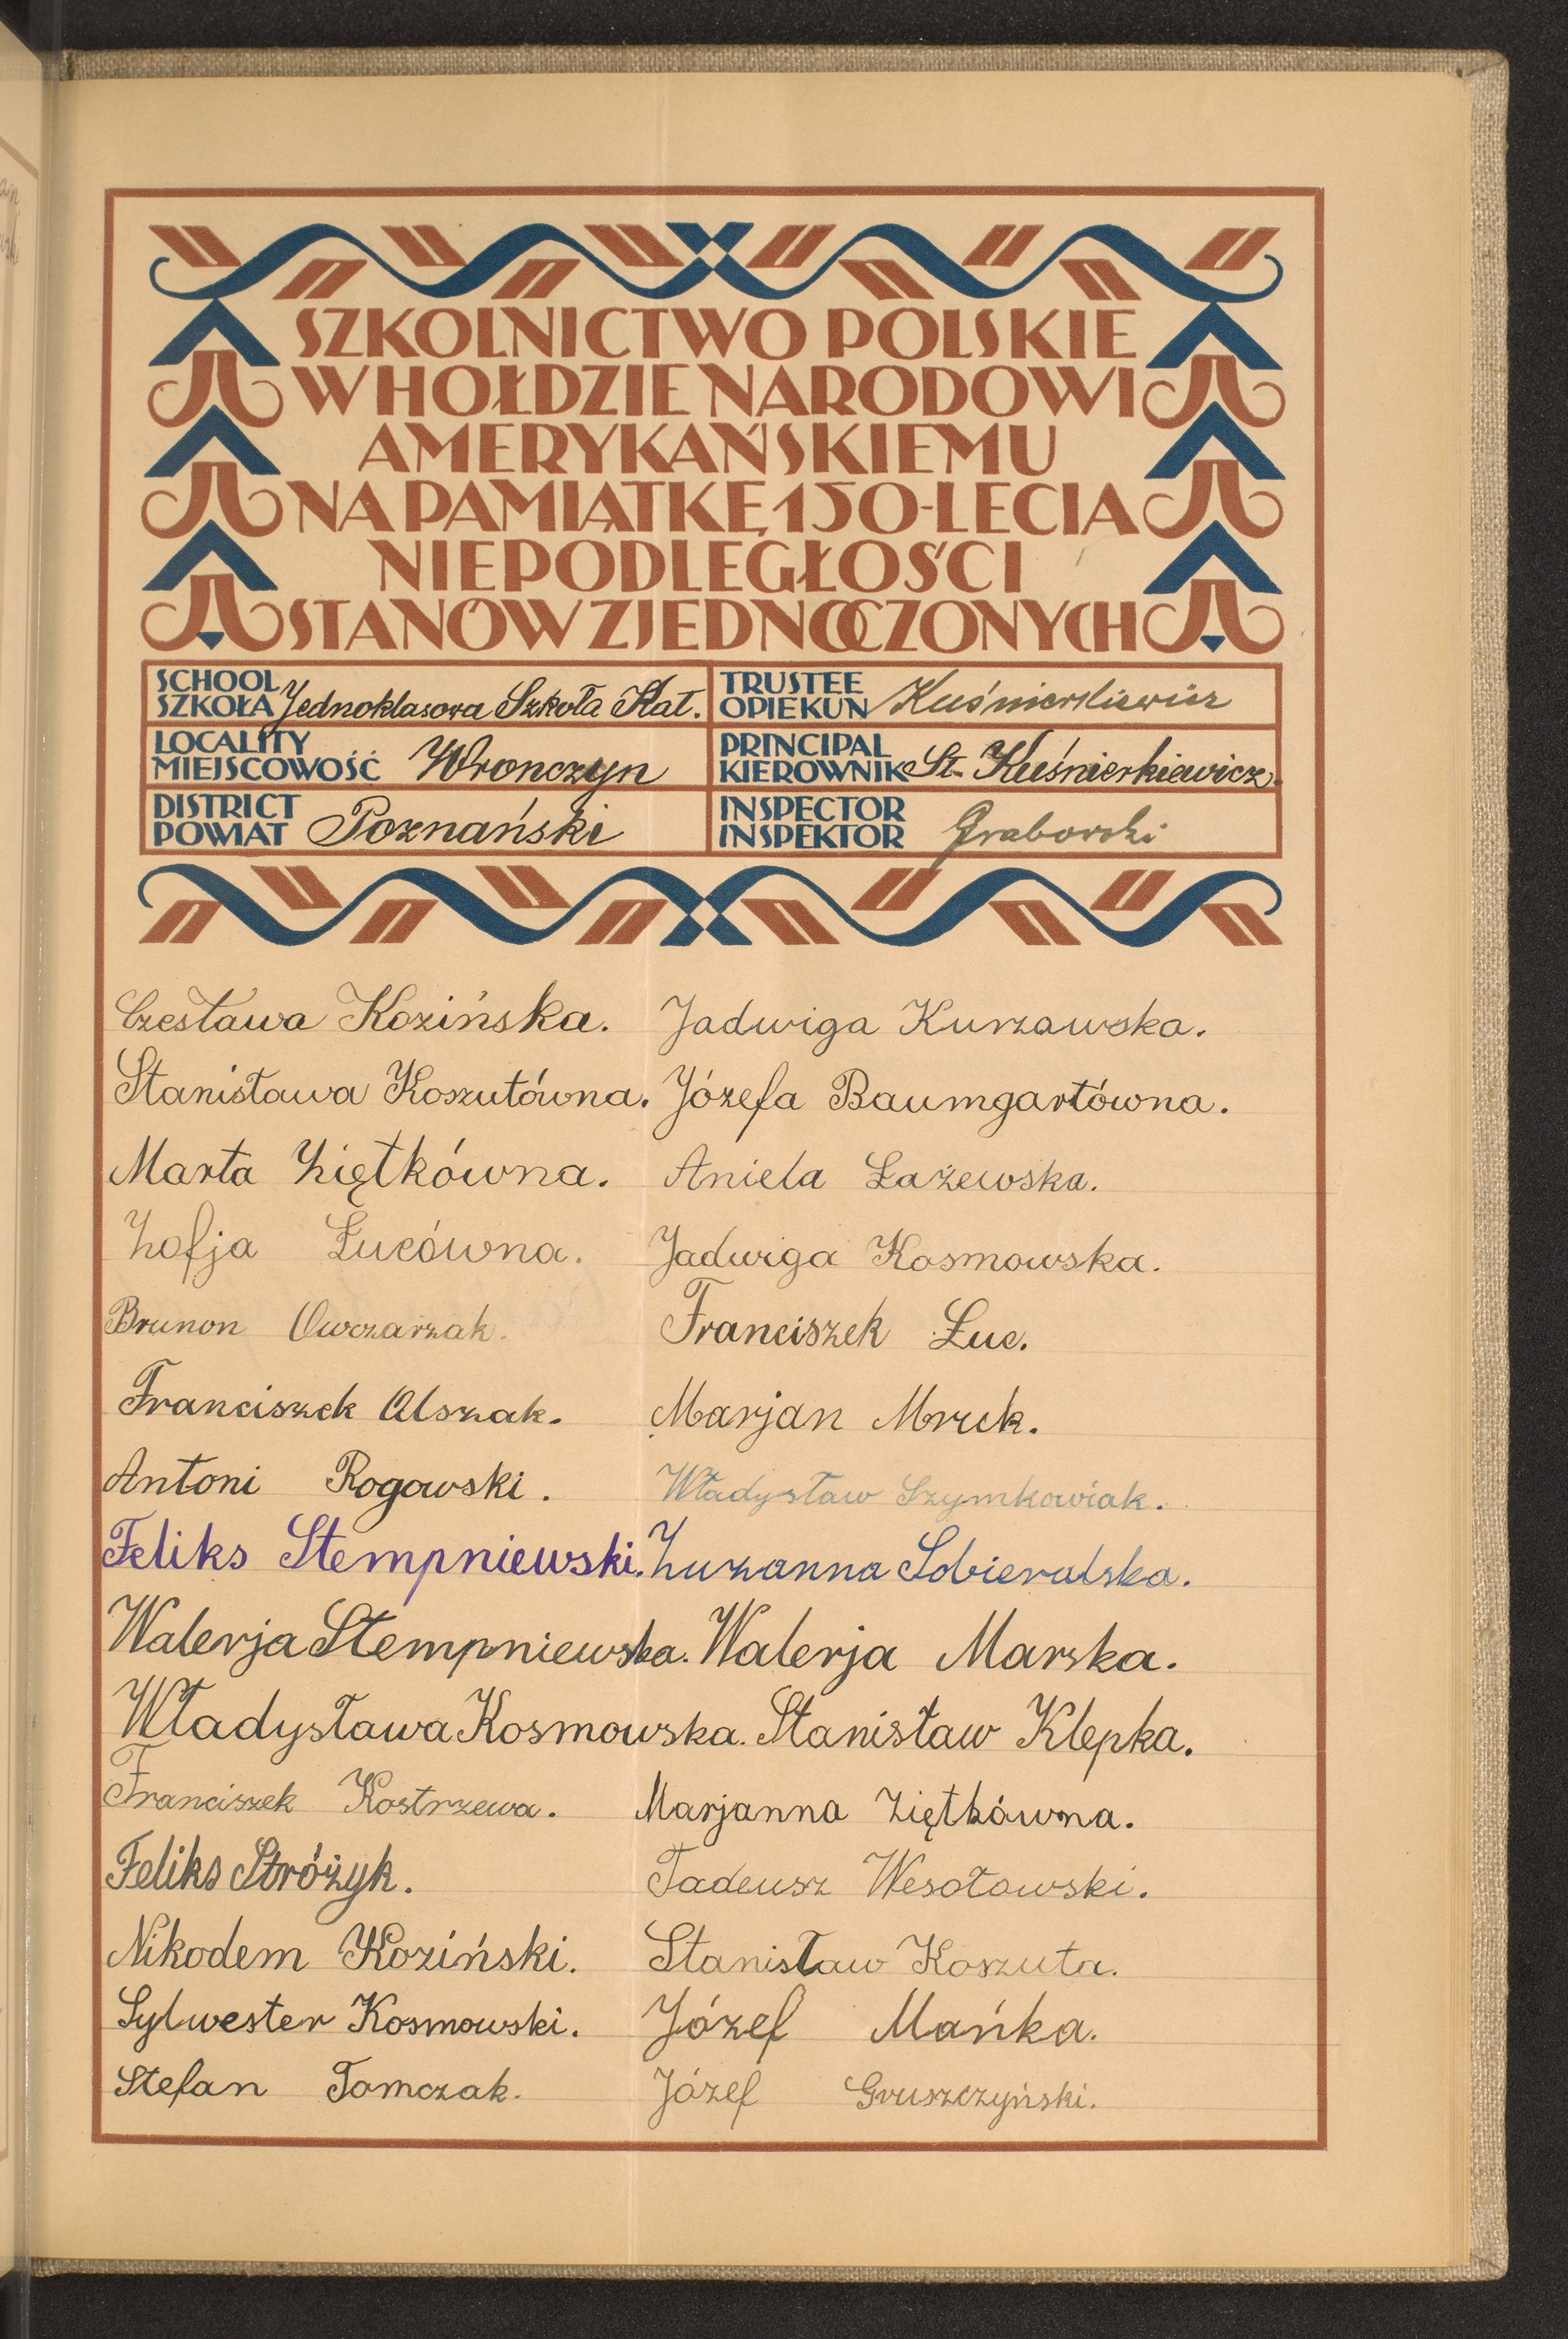 SZKOLNICTWO POLSKIE
W HOŁDZIE NARODOWI
AMERYKAŃSKIEMU
NA PAMIĄTKĘ 150-LECIA
NIEPODLEGŁOŚCI
STANÓW ZJEDNOCZONYCH
SCHOOL
SZKOŁA Jednoklasowa Szkoła Kat.
TRUSTEE
OPIEKUN Kuśnierkiewicz
LOCALITY
MIEJSCOWOŚĆ Wronczyn
PRINCIPAL
KIEROWNIK St. Kuśnierkiewicz.
DISTRICT
POWIAT Poznański
INSPECTOR
INSPEKTOR Grabowski
Czesława Kozińska. Jadwiga Kurzawska.
Stanisława Koszutówna. Józefa Baumgartówna.
Marta Ziętkówna. Aniela Łażewska.
Zofja Łucówna. Jadwiga Kosmowska.
Brunon Owczarzak. Franciszek Łuc.
Franciszek Olszak. Marjan Mruk.
Antoni Rogowski. Władysław Szymkowiak.
Feliks Stempniewski. Zuzanna Sobieralska.
Walerja Stempniewska. Walerja Marska.
Władysława Kosmowska. Stanisław Klepka.
Franciszek Kostrzewa. Marjanna Ziętkówna.
Feliks Stróżyk. Tadeusz Wesołowski.
Nikodem Koziński. Stanisław Koszuta.
Sylwester Kosmowski. Józef Mańka.
Stefan Tomczak. Józef Gruszczyński.